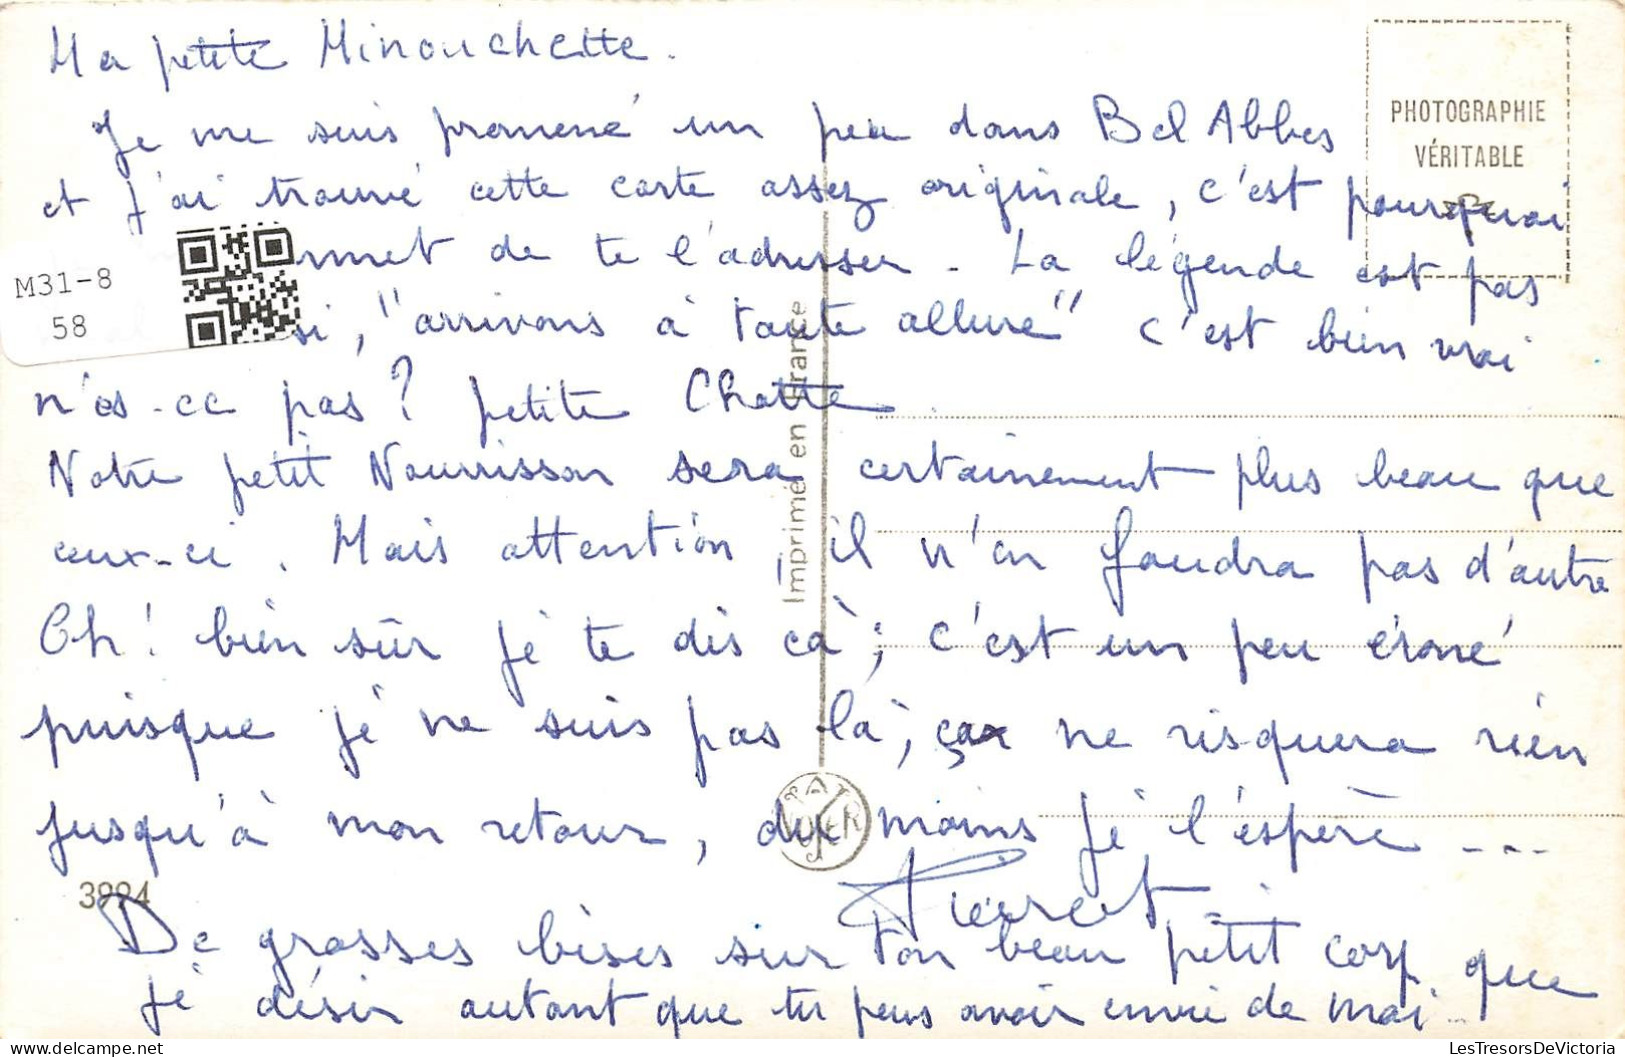 Ma petite Minouchette.
Je me suis promené un peu dans Bel Abbes
et j'ai trouvé cette carte assez originale, c'est pourquoi
met de te l'adresser. La légende est pas
si, "arrivons à toute allure" c'est bien vrai
n'es-ce pas? petite Chatte.
Notre petit Nourrisson sera certainement plus beau que
ceux-ci. Mais attention, il n'en faudra pas d'autre
Oh! bien sûr je te dis cà; c'est un peu éroné
puisque je ne suis pas là, ça ne risquera rien
jusqu'à mon retour, du moins je l'espère ...
Pierrot
De grosses bises sur ton beau petit corp que
je désir autant que tu peus avoir envie de moi..
PHOTOGRAPHIE
VÉRITABLE
M31-8
58
Imprimé en France
3994
© LesTresorsDeVictoria
LesTresorsDeVictoria.com